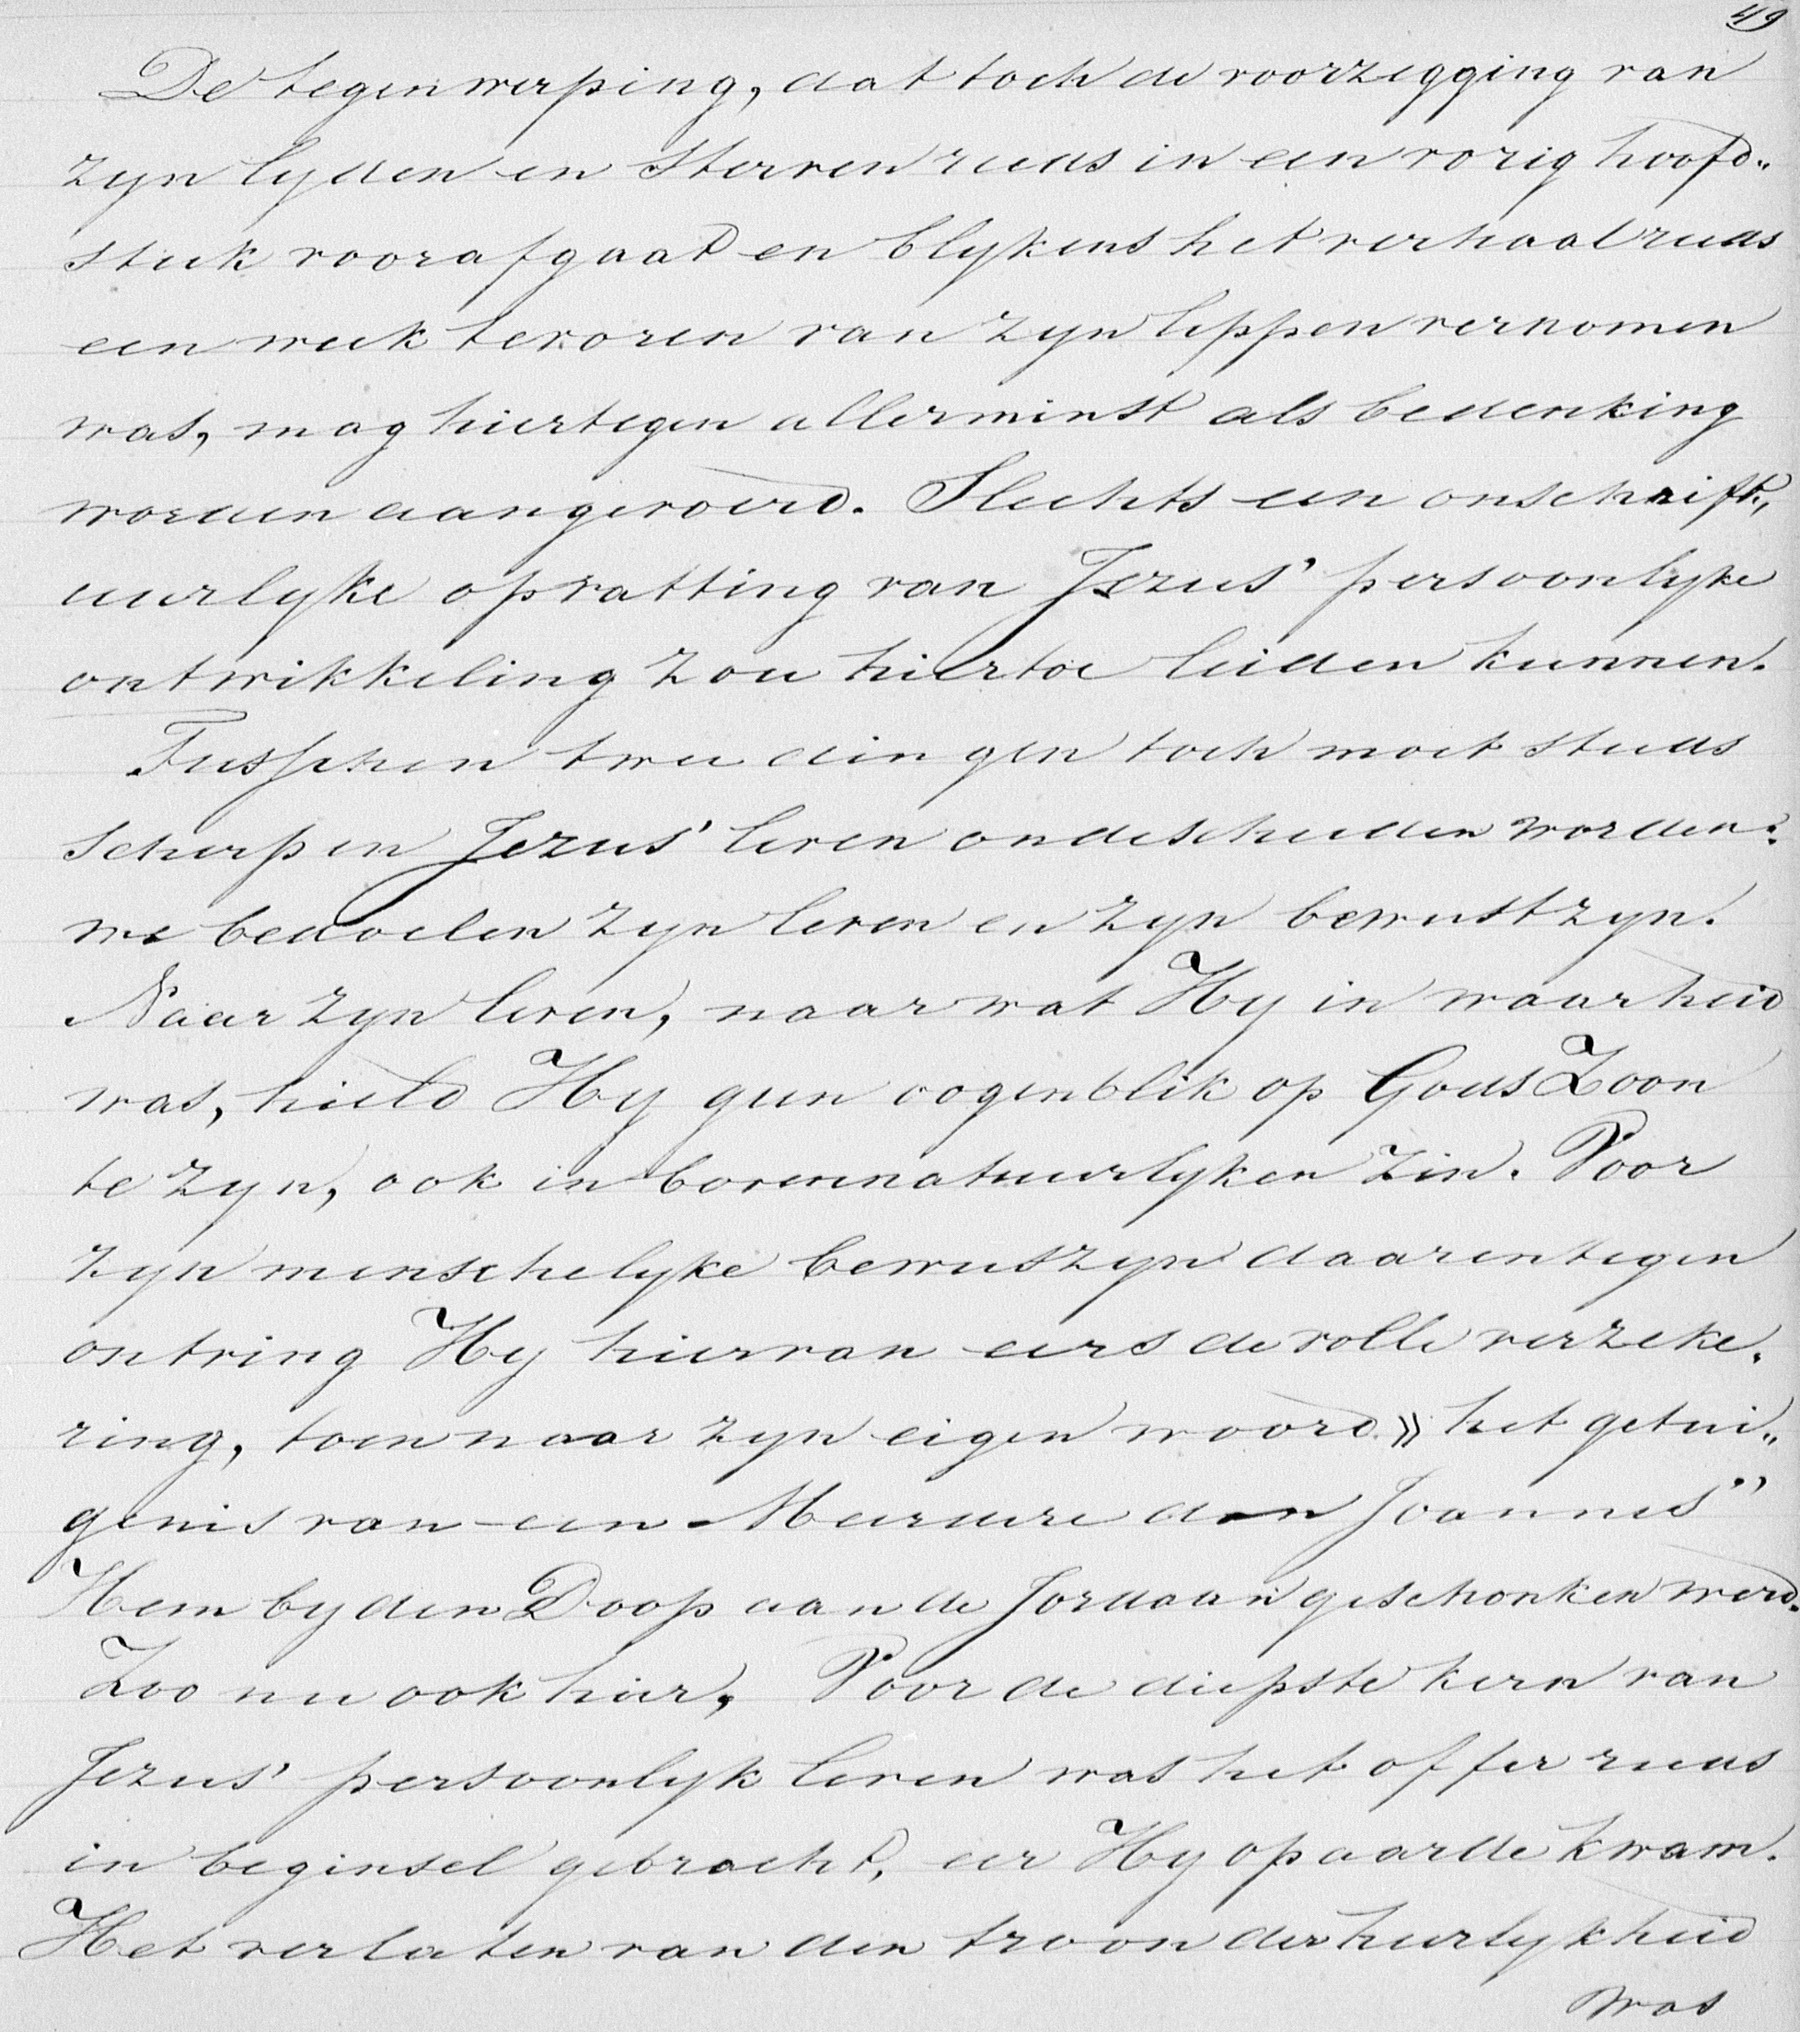 49
De tegenwerping, dat toch de voorzegging van
zyn lyden en sterven reeds in een vorig hoofd„
stuk voorafgaat en blykens het verhaal reeds
een week tevoren van zyn lippen vernomen
was, mag hiertegen allerminst als bedenking
worden aangevoerd. Slechts een onschrift„
uurlyke opvatting van Jezus' persoonlyke
ontwikkeling zou hiertoe leiden kunnen.
Tusschen twee dingen toch moet steeds
scherp in Jezus' leven ondescheiden worden:
we bedoelen zyn leven en zyn bewustzyn.
Naar zyn leven, naar wat Hy in waarheid
was, hield Hy geen oogenblik op Gods Zoon
te zyn, ook in bovennatuurlyken zin. Voor
zyn menschelyke bewustzyn daarentegen
ontving Hy hiervan eers de volle verzeke„
ring, toen naar zyn eigen woord » het getui„
genis van een Meerdere dan Joannes"
Hem by den Doop aan de Jordaan geschonken werd.
Zoo nu ook hier, Voor de diepste kern van
Jezus' persoonlyk leven was het offer reeds
in beginsel gebracht, eer Hy op aarde kwam.
Het verlaten van den troon der heerlykheid
was